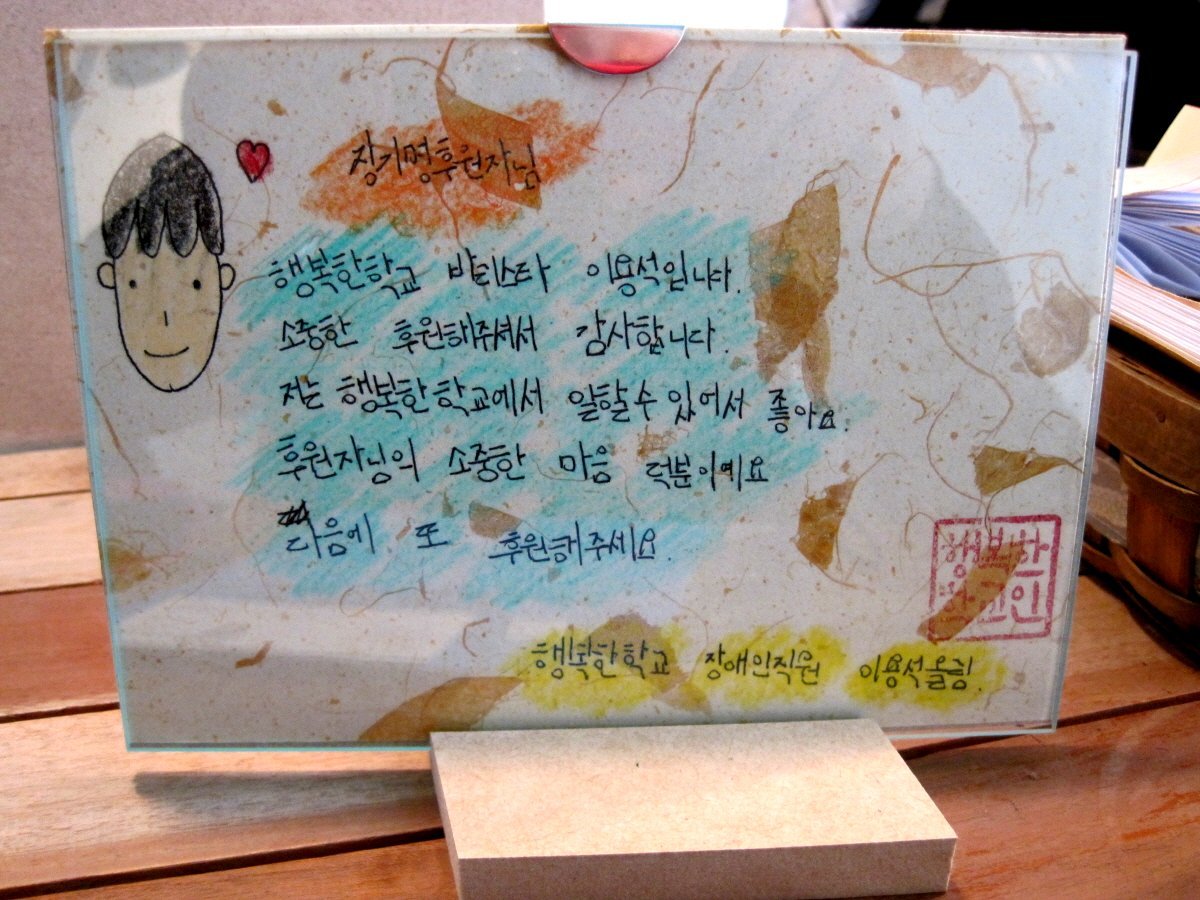 장기명후원자님
행복한학교 바리스타 이용석입니다.
소중한 후원해주셔서 감사합니다.
저는 행복한학교에서 일할수있어서 좋아요.
후원자님의 소중한 마음 덕분이예요
다음에 또 후원해주세요.
행복한학교 장애인직원 이용석올림.
행복한
학교인